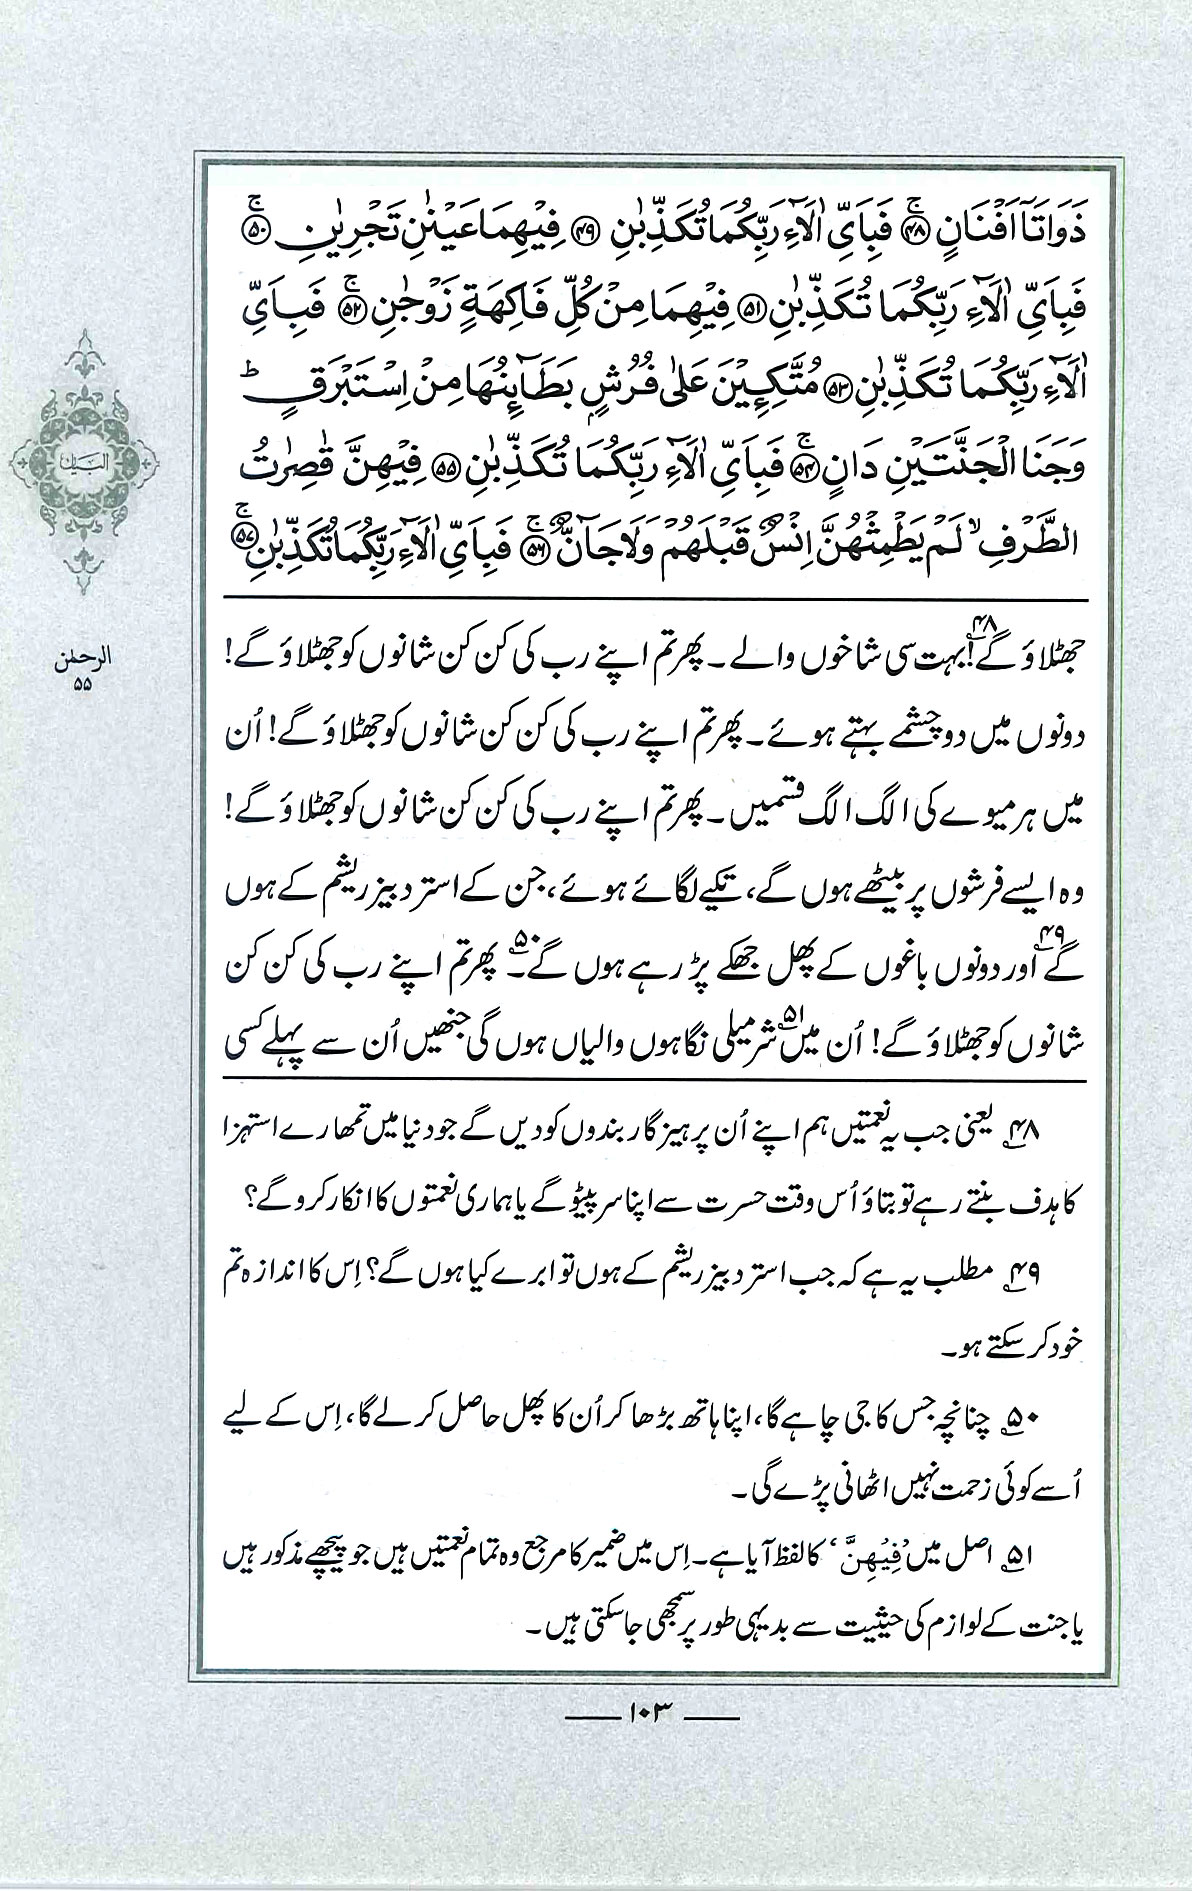 ذَوَاتَآ اَفْنَانٍ ﴿۴۸﴾ۚ فَبِاَیِّ اٰلَآءِ رَبِّكُمَا تُكَذِّبٰنِ ﴿۴۹﴾ فِیْهِمَا عَیْنٰنِ تَجْرِیٰنِ ﴿۵۰﴾ۚ
فَبِاَیِّ اٰلَآءِ رَبِّكُمَا تُكَذِّبٰنِ ﴿۵۱﴾ فِیْهِمَا مِنْ كُلِّ فَاكِهَةٍ زَوْجٰنِ ﴿۵۲﴾ۚ فَبِاَیِّ
اٰلَآءِ رَبِّكُمَا تُكَذِّبٰنِ ﴿۵۳﴾ مُتَّكِـِٕیْنَ عَلٰی فُرُشٍۭ بَطَآىِٕنُهَا مِنْ اِسْتَبْرَقٍ ؕ
وَجَنَا الْجَنَّتَیْنِ دَانٍ ﴿۵۴﴾ۚ فَبِاَیِّ اٰلَآءِ رَبِّكُمَا تُكَذِّبٰنِ ﴿۵۵﴾ فِیْهِنَّ قٰصِرٰتُ
الطَّرْفِ ۙ لَمْ یَطْمِثْهُنَّ اِنْسٌ قَبْلَهُمْ وَلَا جَآنٌّ ﴿۵۶﴾ۚ فَبِاَیِّ اٰلَآءِ رَبِّكُمَا تُكَذِّبٰنِ ﴿۵۷﴾ۚ
البیان
الرحمٰن
۵۵
جھٹلاؤ گے!۴۸ بہت سی شاخوں والے ۔ پھر تم اپنے رب کی کن کن شانوں کو جھٹلاؤ گے!
دونوں میں دو چشمے بہتے ہوئے ۔ پھر تم اپنے رب کی کن کن شانوں کو جھٹلاؤ گے! اُن
میں ہر میوے کی الگ الگ قسمیں ۔ پھر تم اپنے رب کی کن کن شانوں کو جھٹلاؤ گے!
وہ ایسے فرشوں پر بیٹھے ہوں گے، تکیے لگائے ہوئے، جن کے استر دبیز ریشم کے ہوں
گے۴۹ اور دونوں باغوں کے پھل جھکے پڑ رہے ہوں گے۔۵۰ پھر تم اپنے رب کی کن کن
شانوں کو جھٹلاؤ گے! اُن میں۵۱ شرمیلی نگاہوں والیاں ہوں گی جنھیں اُن سے پہلے کسی
۴۸؎ یعنی جب یہ نعمتیں ہم اپنے اُن پرہیزگار بندوں کو دیں گے جو دنیا میں تمھارے استہزا
کا ہدف بنتے رہے تو بتاؤ اُس وقت حسرت سے اپنا سر پیٹو گے یا ہماری نعمتوں کا انکار کرو گے؟
۴۹؎ مطلب یہ ہے کہ جب استر دبیز ریشم کے ہوں تو ابرے کیا ہوں گے؟ اِس کا اندازہ تم
خود کر سکتے ہو۔
۵۰؎ چنانچہ جس کا جی چاہے گا، اپنا ہاتھ بڑھا کر اُن کا پھل حاصل کر لے گا، اِس کے لیے
اُسے کوئی زحمت نہیں اٹھانی پڑے گی۔
۵۱؎ اصل میں ’فِیْهِنَّ‘ کا لفظ آیا ہے۔ اِس میں ضمیر کا مرجع وہ تمام نعمتیں ہیں جو پیچھے مذکور ہیں
یا جنت کے لوازم کی حیثیت سے بدیہی طور پر سمجھی جا سکتی ہیں۔
۱۰۳